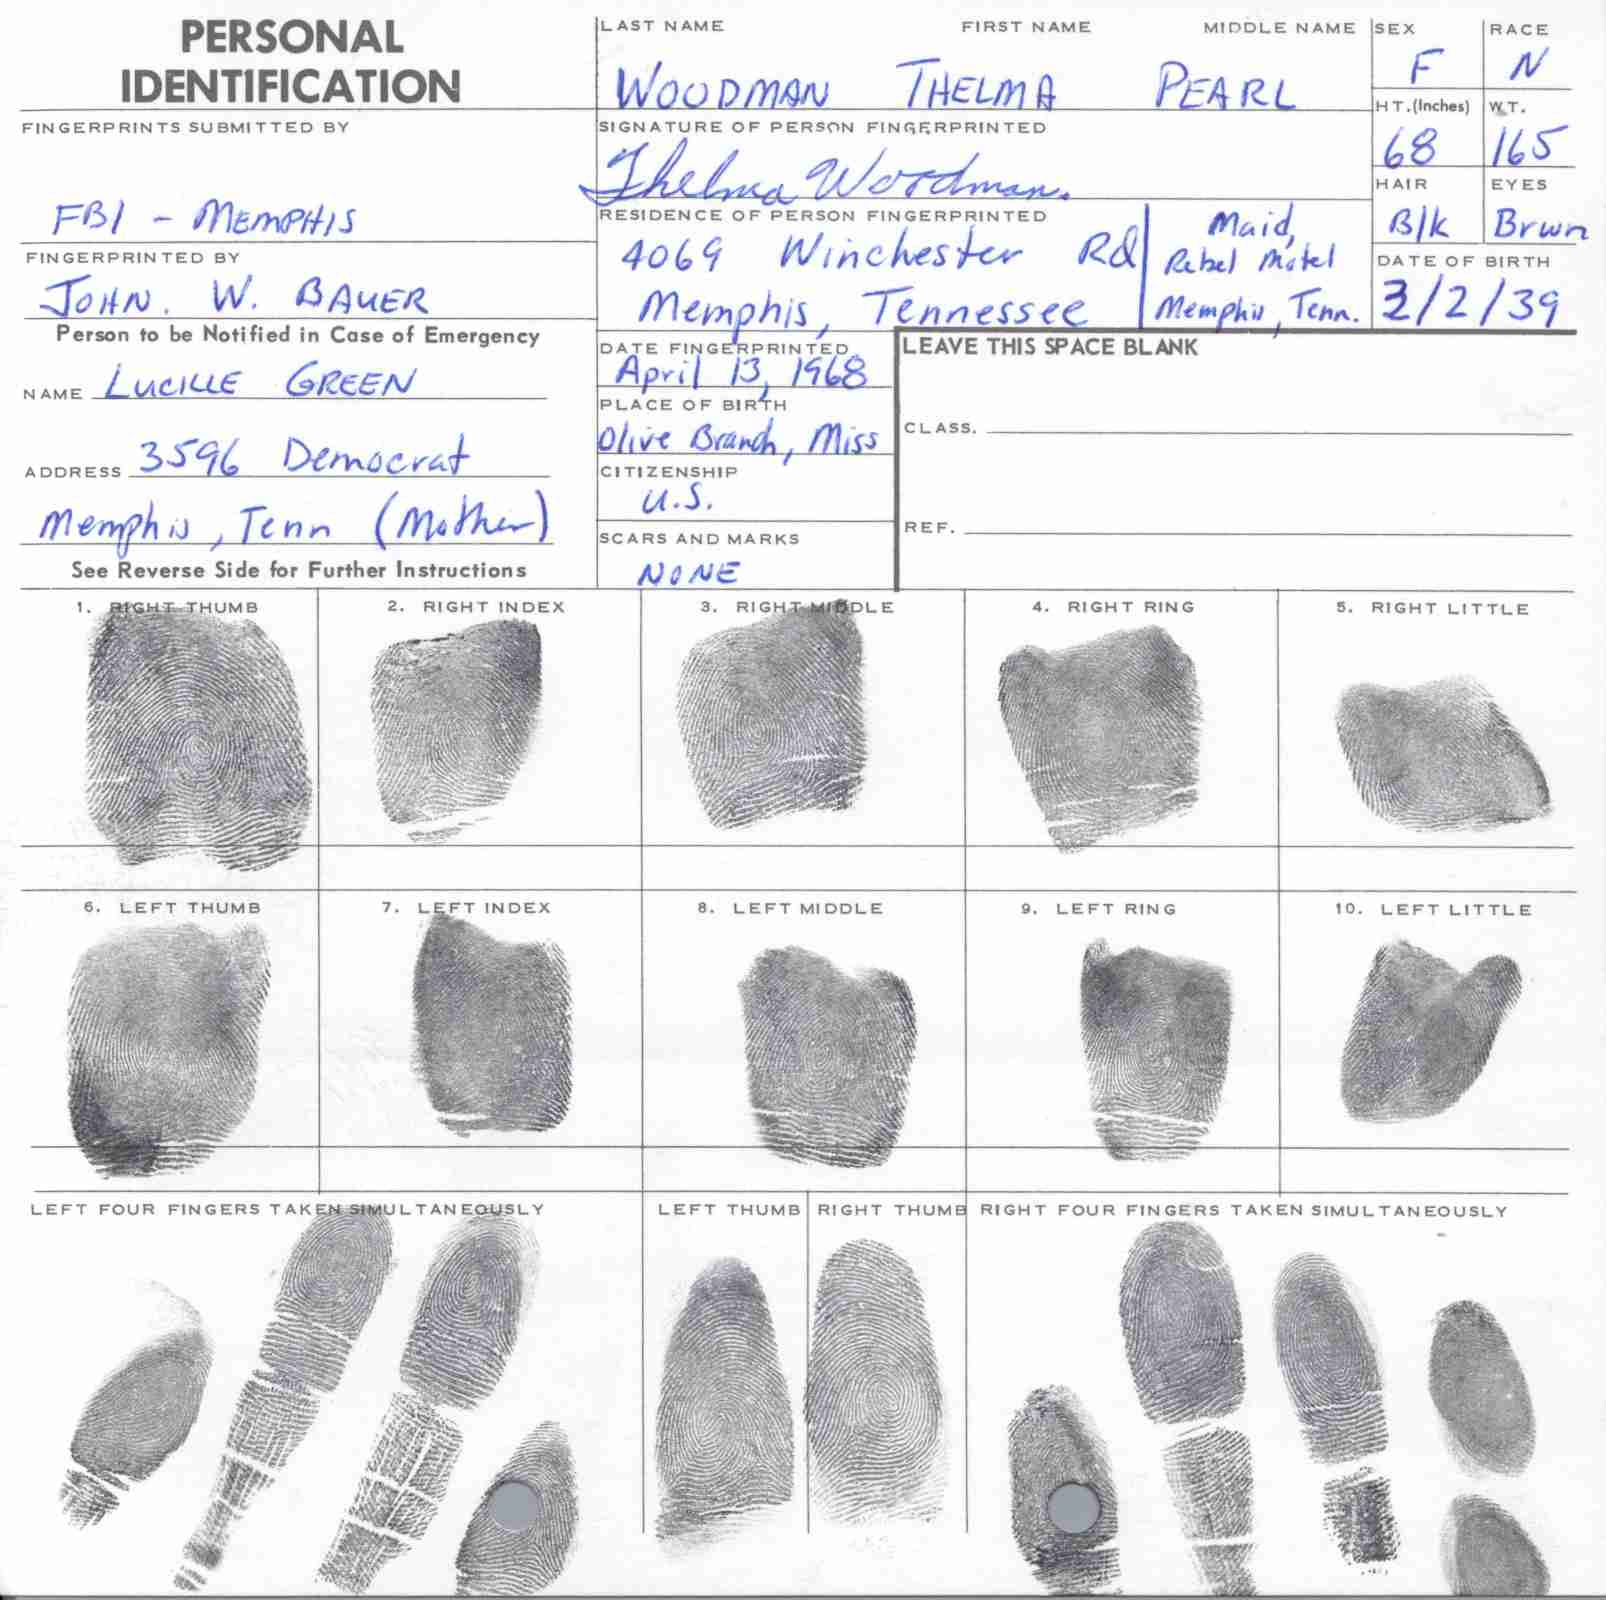 PERSONAL
IDENTIFICATION
FINGERPRINTS SUBMITTED BY
FBI - MEMPHIS
FINGERPRINTED BY
JOHN. W. BAUER
Person to be Notified in Case of Emergency
NAME LUCILLE GREEN
ADDRESS 3596 Democrat
Memphis, Tenn (Mother)
See Reverse Side for Further Instructions
LAST NAME FIRST NAME MIDDLE NAME
WOODMAN THELMA PEARL
SIGNATURE OF PERSON FINGERPRINTED
Thelma Woodman.
RESIDENCE OF PERSON FINGERPRINTED
4069 Winchester Rd
Memphis, Tennessee
Maid,
Rebel Motel
Memphis, Tenn.
SEX RACE
F N
HT.(Inches) WT.
68 165
HAIR EYES
Blk Brwn
DATE OF BIRTH
3/2/39
DATE FINGERPRINTED
April 13, 1968
PLACE OF BIRTH
Olive Branch, Miss
CITIZENSHIP
U.S.
SCARS AND MARKS
NONE
LEAVE THIS SPACE BLANK
CLASS.
REF.
1. RIGHT THUMB 2. RIGHT INDEX 3. RIGHT MIDDLE 4. RIGHT RING 5. RIGHT LITTLE
6. LEFT THUMB 7. LEFT INDEX 8. LEFT MIDDLE 9. LEFT RING 10. LEFT LITTLE
LEFT FOUR FINGERS TAKEN SIMULTANEOUSLY LEFT THUMB RIGHT THUMB RIGHT FOUR FINGERS TAKEN SIMULTANEOUSLY